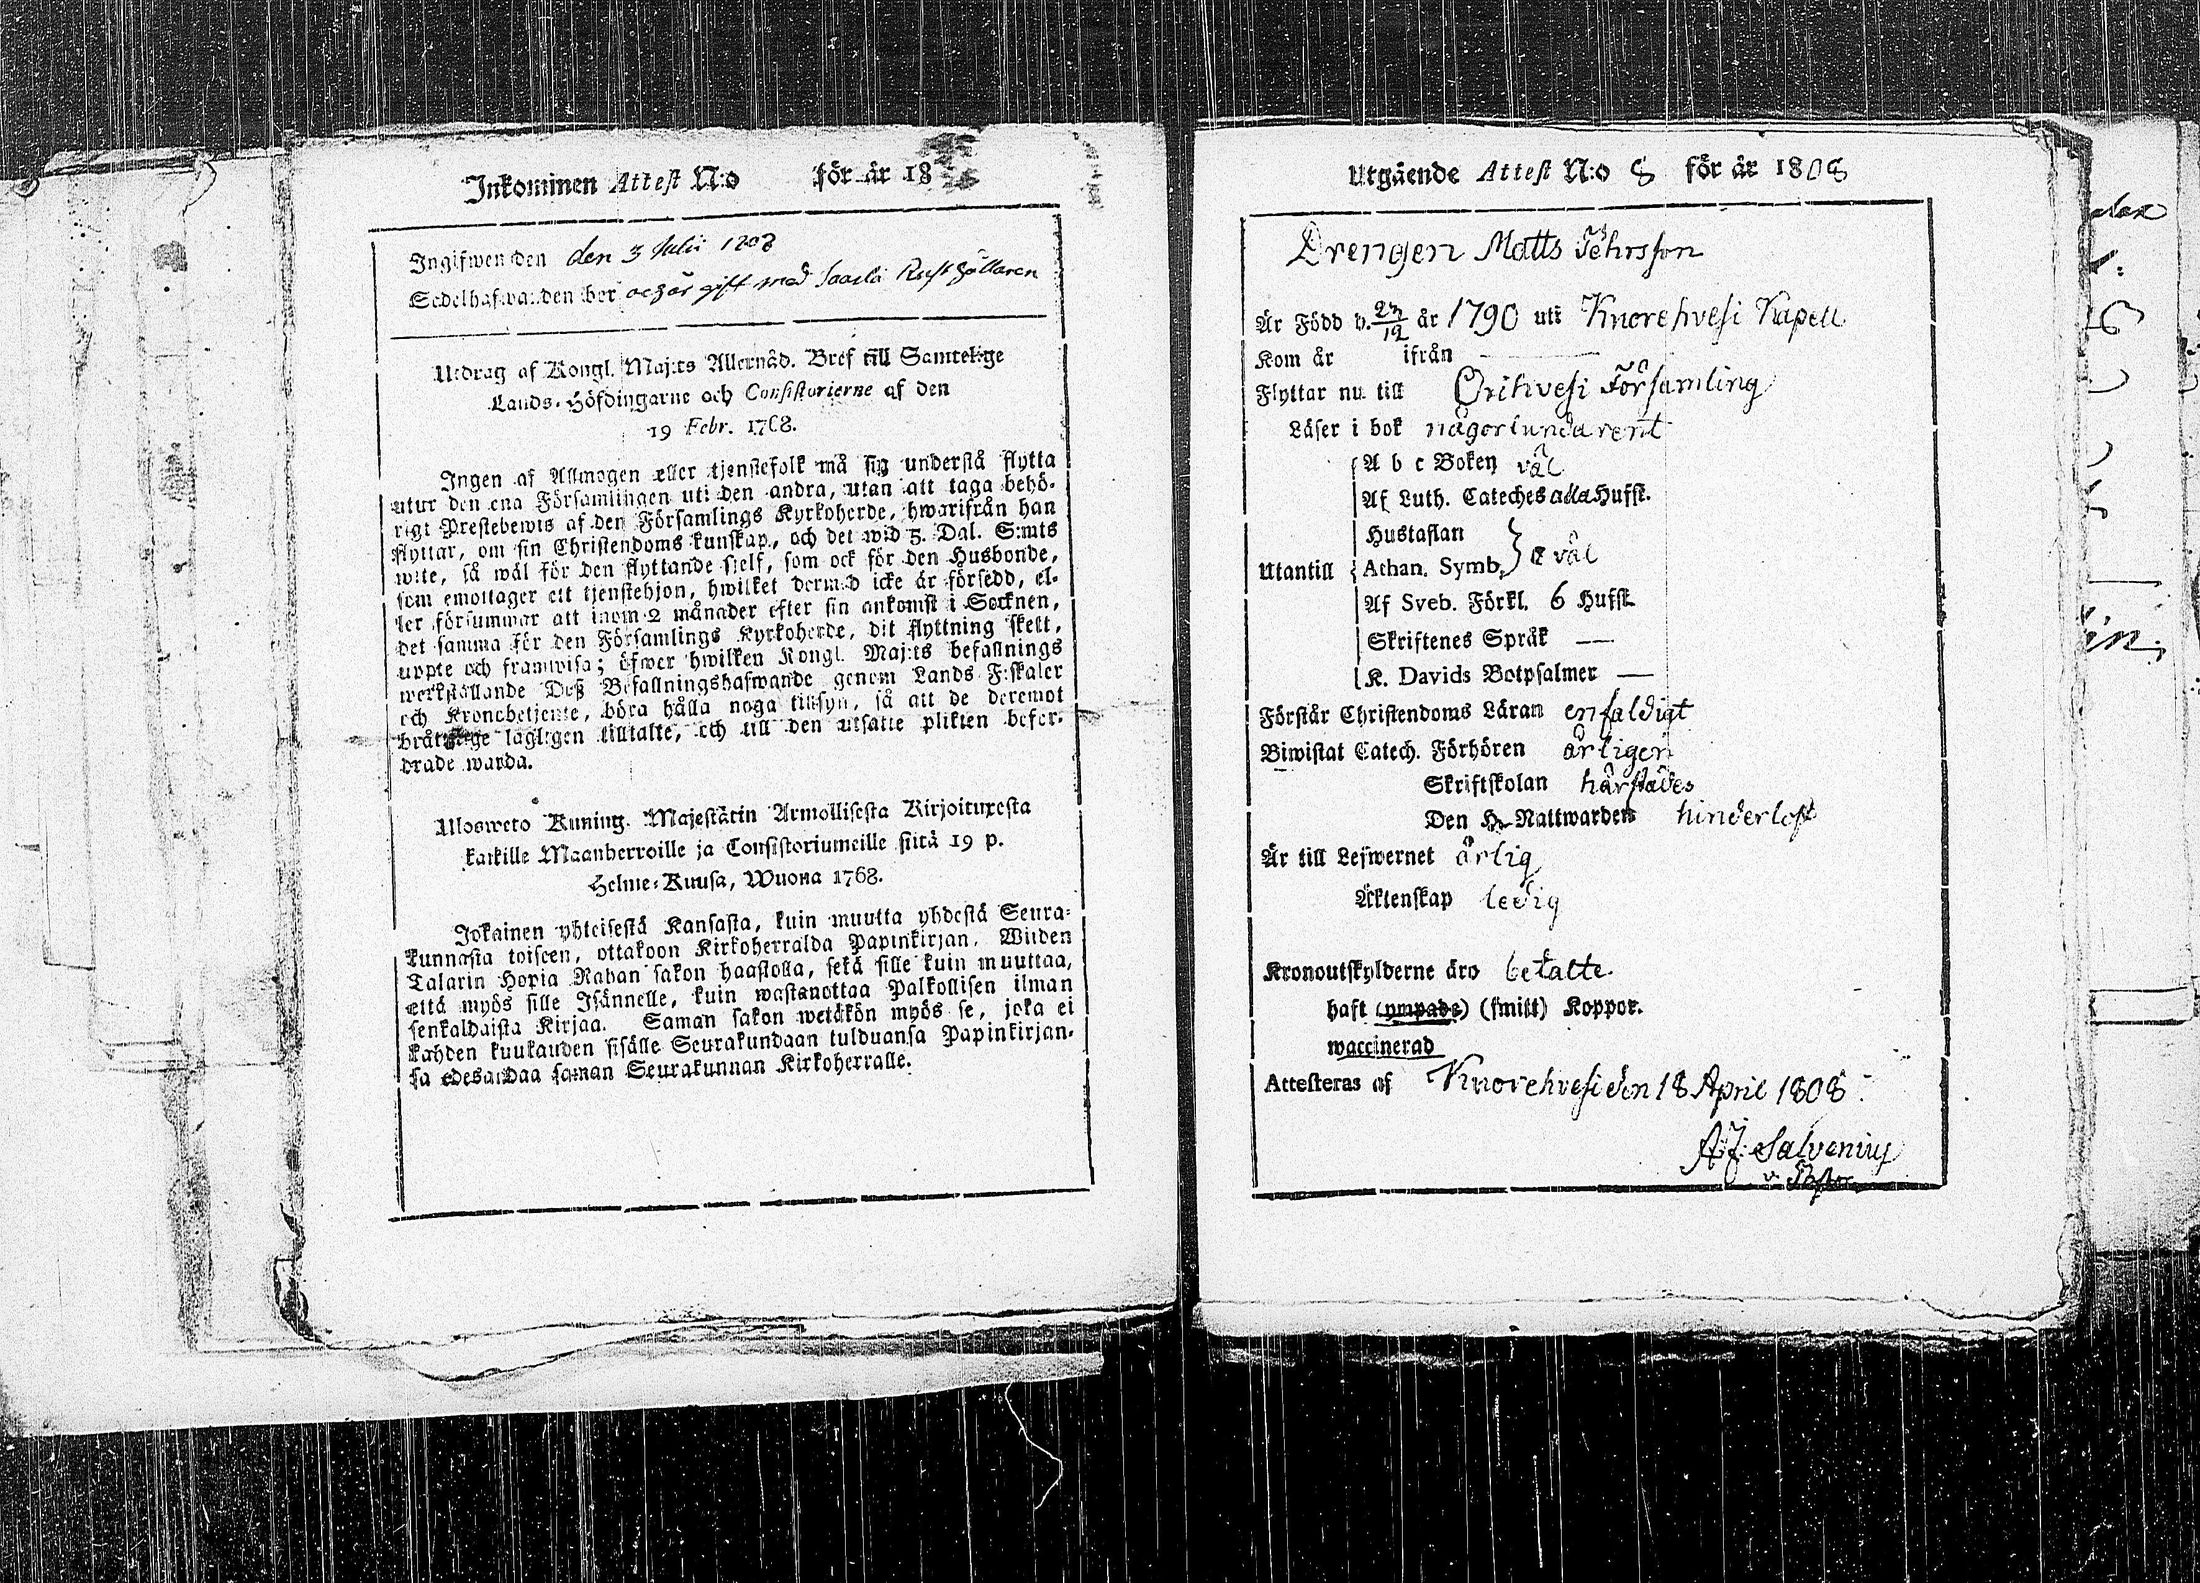 Inkommen Attest N:o för år 18
Ingifwen den den 3 Julii 1808
Sedelhafwanden bor och är gift med Saarla Rusthållaren
Utdrag af Kongl. Maj:ts Allernåd. Bref till Samtelige
Lands-Höfdingarne och Consistorierne af den
19 Febr. 1768.
Ingen af Allmogen eller tjenstefolk må sig understå flytta
utur den ena Församlingen uti den andra, utan att taga behö-
rigt Prestebewis af den Församlings Kyrkoherde, hwarifrån han
flyttar, om sin Christendoms kunskap, och det wid 5. Dal. S:mts
wite, så wäl för den flyttande sjelf, som ock för den Husbonde,
som emottager ett tjenstehjon, hwilket dermed icke är försedd, el-
ler försummar att inom 2 månader efter sin ankomst i Socknen,
det samma för den Församlings Kyrkoherde, dit flyttning skett,
uppte och framwisa; öfwer hwilken Kongl. Maj:ts befallnings
werkställande Deß Befallningshafwande genom Lands Fiskaler
och Kronobetjente, böra hålla noga tillsyn, så att de deremot
bråtslige lagligen tilltalte, och till den utsatte plikten befor-
drade warda.
Ulosweto Kuning. Majestätin Armollisesta Kirjoituxesta
kaikille Maanherroille ja Consistoriumeille siitä 19 p.
Helme-Kuusa, Wuona 1768.
Jokainen yhteisestä Kansasta, kuin muutta yhdestä Seura-
kunnasta toiseen, ottakoon Kirkoherralda Papinkirjan, Wiiden
Talarin Hopia Rahan sakon haastolla, sekä sille kuin muuttaa,
että myös sille Isännelle, kuin wastanottaa Palkollisen ilman
senkaldaista Kirjaa. Saman sakon wetäkön myös se, joka ei
kahden kuukauden sisälle Seurakundaan tulduansa Papinkirjan-
sa edesandaa saman Seurakunnan Kirkoherralle.
Utgående Attest N:o 8 för år 1808
Drengen Matts Pehrsson
Är Född d. 27/12 år 1790 uti Kuorehvesi Kapell
Kom år ifrån
Flyttar nu till Orihvesi Församling
Läser i bok någorlunda rent
A b c Boken väl
Af Luth. Cateches alla Hufst.
Hustaflan
Utantill Athan. Symb. väl
Af Sveb. Förkl. 6 Hufst.
Skriftenes Språk —
K. Davids Botpsalmer —
Förstår Christendoms Läran enfaldigt
Biwistat Catech. Förhören årligen
Skriftskolan härstädes
Den H. Nattwarden hinderlöst
Är till Lefwernet ärlig
Äktenskap ledig
Kronoutskylderne äro betalte.
haft (ympade) (smitt) Koppor.
waccinerad
Attesteras af Kuorehvesi den 18 April 1808.
A J: Salvenius
v: Pastor